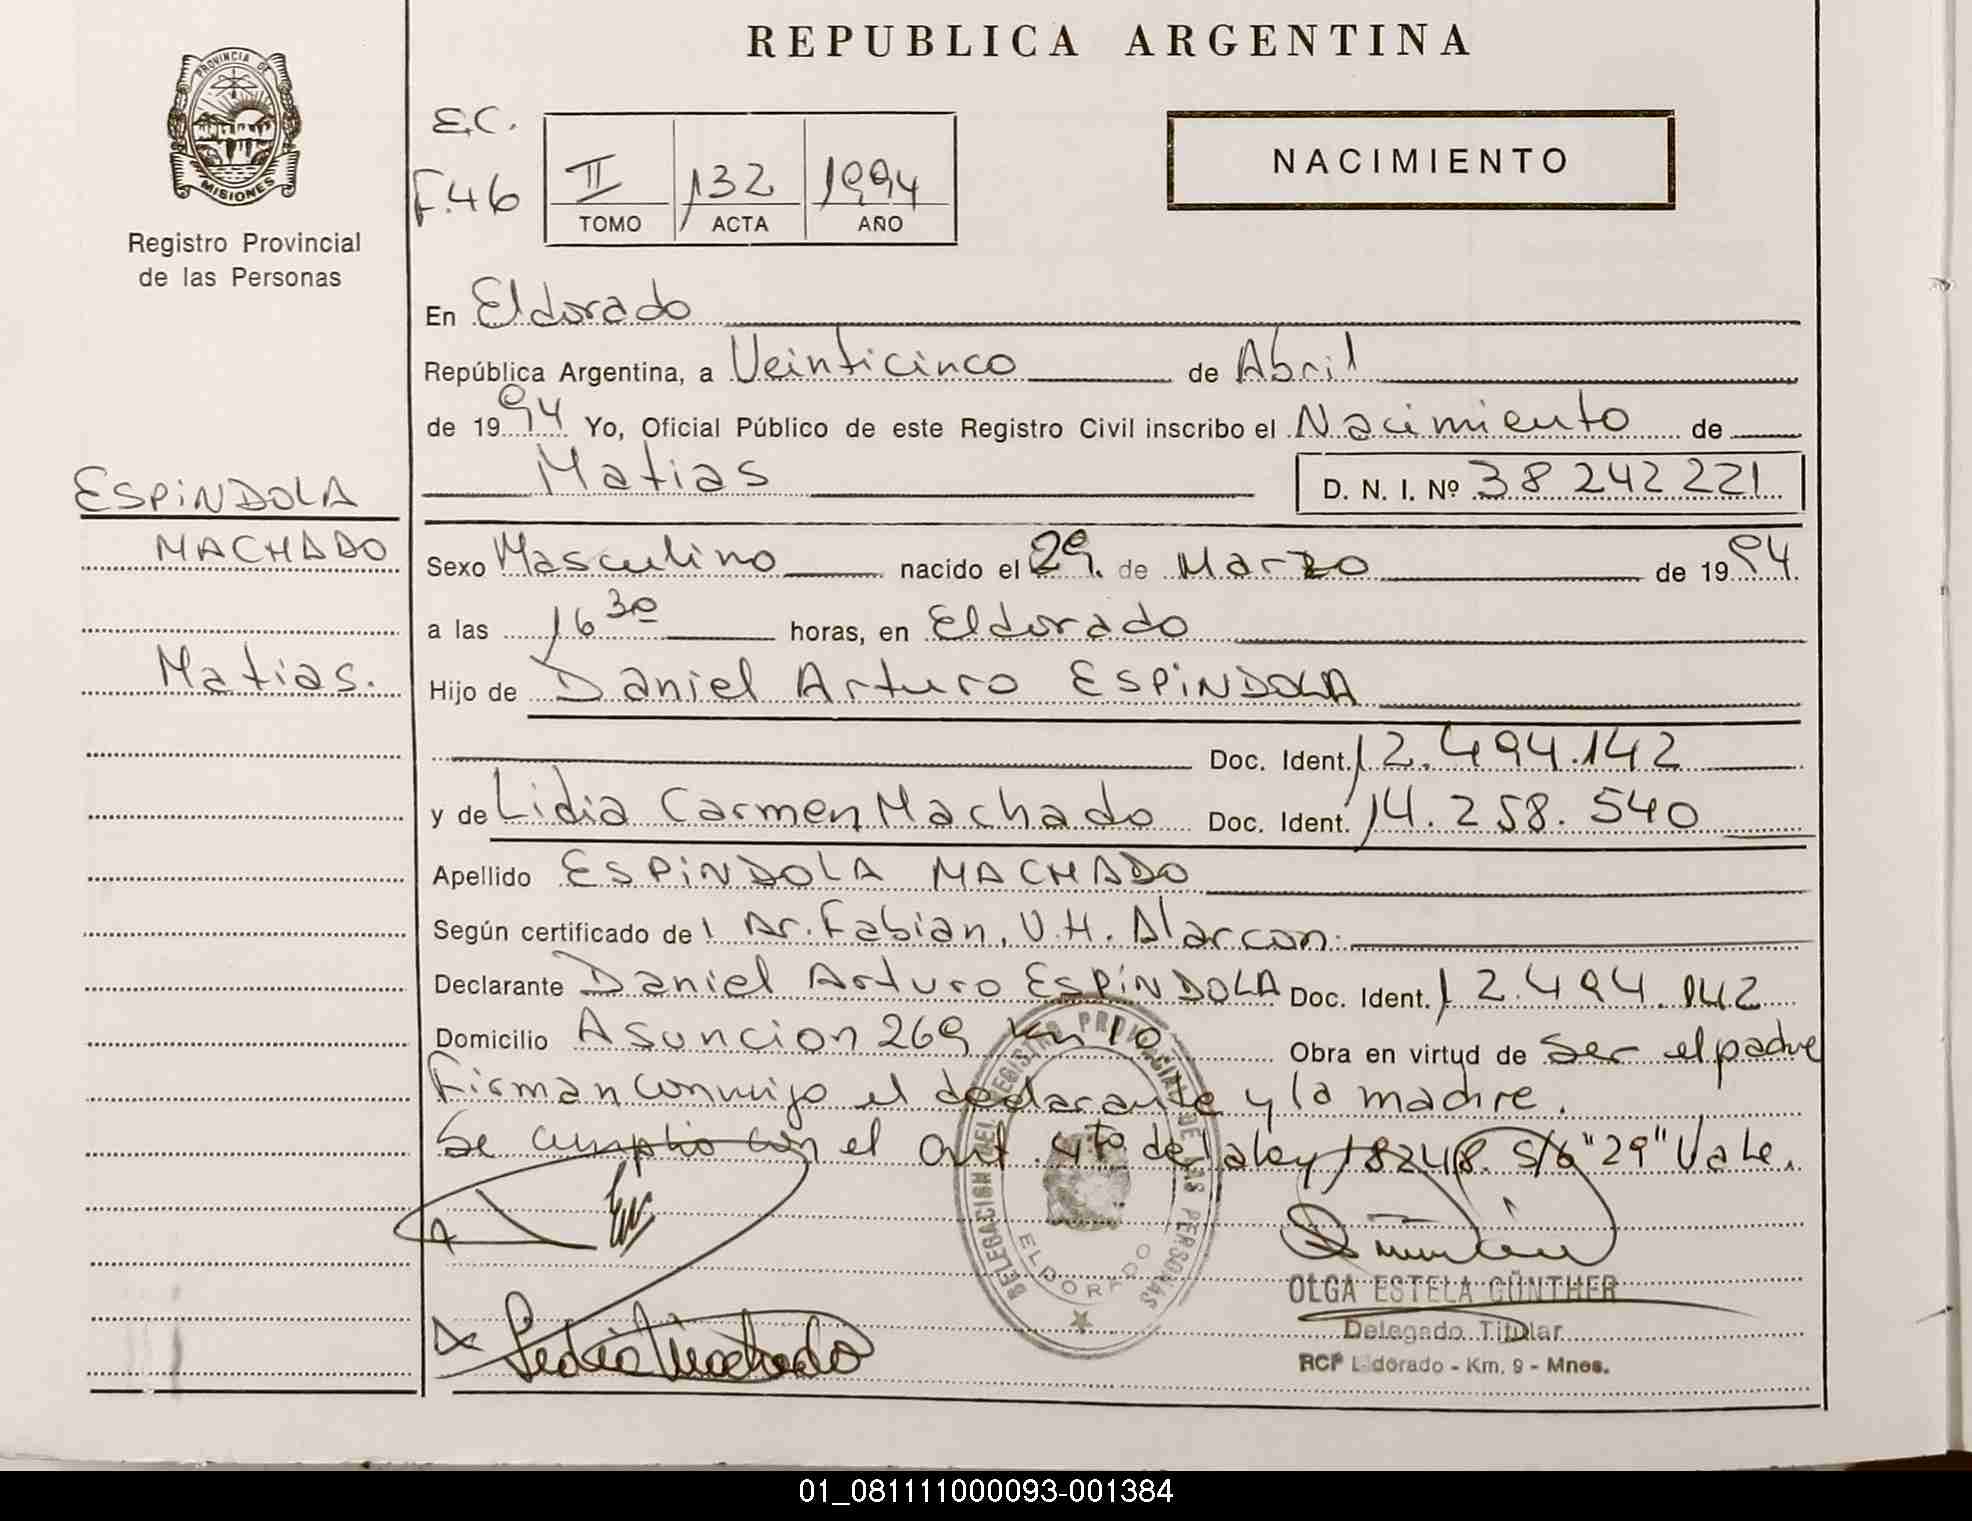 REPUBLICA ARGENTINA
PROVINCIA DE
MISIONES
Registro Provincial
de las Personas
E.C.
F.46
II 132 1994
TOMO ACTA AÑO
NACIMIENTO
En Eldorado
República Argentina, a Veinticinco de Abril
de 1994 Yo, Oficial Público de este Registro Civil inscribo el Nacimiento de
Matias D. N. I. Nº 38 242 221
ESPINDOLA
MACHADO
Matias.
Sexo Masculino nacido el 29. de Marzo de 1994.
a las 16 30 horas, en Eldorado
Hijo de Daniel Arturo ESPINDOLA
Doc. Ident. 12.494.142
y de Lidia Carmen Machado Doc. Ident. 14.258.540
Apellido ESPINDOLA MACHADO
Según certificado de Dr. Fabian, V.H. Alarcon.
Declarante Daniel Arturo ESPINDOLA Doc. Ident. 12.494.142
Domicilio Asuncion 269 Km 10 Obra en virtud de Ser el padre
Firman conmigo el declarante y la madre.
Se cumplio con el Art. 4to de la ley 18248. S/b "29" Vale.
DELEGACION DEL REGISTRO PROVINCIAL DE LAS PERSONAS
ELDORADO
Lidia Machado
OLGA ESTELA GÜNTHER
Delegado Titular
RCP Eldorado - Km. 9 - Mnes.
01_081111000093-001384